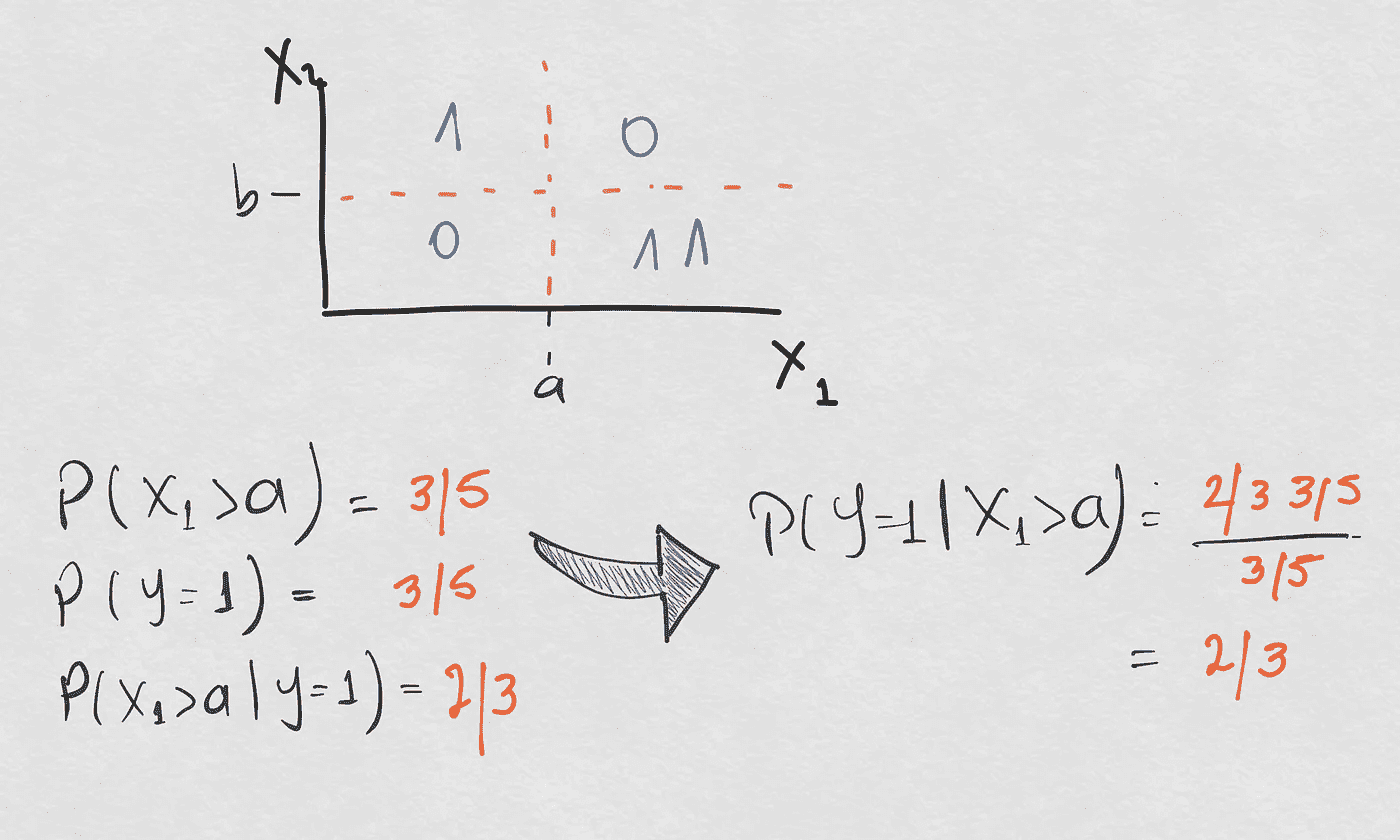 X₂
1 0
b
0 1 1
a
X₁
P(X₁>a) = 3/5
P(y=1) = 3/5
P(X₁>a|y=1) = 2/3
P(y=1|X₁>a) = 2/3 3/5
3/5
= 2/3